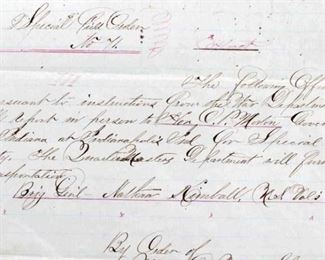 Special Field Orders
No 4.
Extract
The following Offi
suant to instructions from the War Departmen
report in person to Hon O. P. Morton Gover
Indiana at Indianapolis Ind for Special
ty. The Quartermasters Department will fur
sportation
Brig Genl Nathan Kimball, U.S. Vols
By Order of